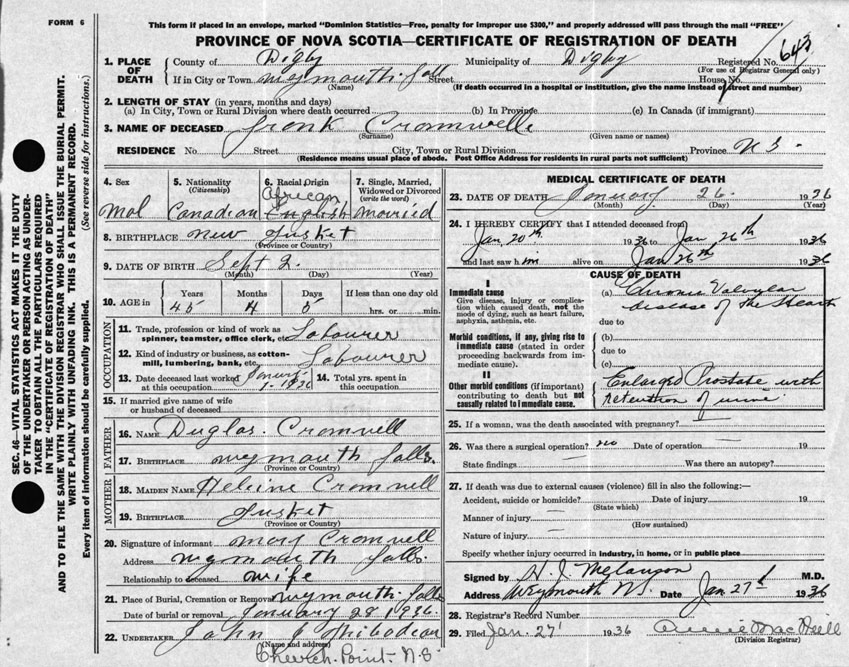 FORM 6
This form if placed in an envelope, marked "Dominion Statistics—Free, penalty for improper use $300," and properly addressed will pass through the mail "FREE"
PROVINCE OF NOVA SCOTIA—CERTIFICATE OF REGISTRATION OF DEATH
SEC. 46—VITAL STATISTICS ACT MAKES IT THE DUTY
OF THE UNDERTAKER OR PERSON ACTING AS UNDER-
TAKER TO OBTAIN ALL THE PARTICULARS REQUIRED
IN THE "CERTIFICATE OF REGISTRATION OF DEATH"
AND TO FILE THE SAME WITH THE DIVISION REGISTRAR WHO SHALL ISSUE THE BURIAL PERMIT.
WRITE PLAINLY WITH UNFADING INK. THIS IS A PERMANENT RECORD.
Every item of information should be carefully supplied. (See reverse side for instructions.)
1. PLACE OF DEATH
County of Digby Municipality of Digby Registered No. 643
(For use of Registrar General only)
If in City or Town Weymouth Falls Street House No.
(Name) (If death occurred in a hospital or institution, give the name instead of street and number)
2. LENGTH OF STAY (in years, months and days)
(a) In City, Town or Rural Division where death occurred (b) In Province (c) In Canada (if immigrant)
3. NAME OF DECEASED Frank Cromwell
(Surname) (Given name or names)
RESIDENCE No. Street City, Town or Rural Division Province N S
(Residence means usual place of abode. Post Office Address for residents in rural parts not sufficient)
4. Sex 5. Nationality (Citizenship) 6. Racial Origin 7. Single, Married, Widowed or Divorced (write the word)
African
Mal Canadian English Married
8. BIRTHPLACE New Tusket
(Province or Country)
9. DATE OF BIRTH Sept 2
(Month) (Day) (Year)
10. AGE in Years Months Days If less than one day old
45 4 hrs. or min.
OCCUPATION
11. Trade, profession or kind of work as spinner, teamster, office clerk, etc. Labourer
12. Kind of industry or business, as cotton-mill, lumbering, bank, etc. Labourer
13. Date deceased last worked at this occupation 1-1936 14. Total yrs. spent in this occupation
15. If married give name of wife or husband of deceased
FATHER
16. NAME Duglas Cromwell
17. BIRTHPLACE Weymouth Falls
(Province or Country)
MOTHER
18. MAIDEN NAME Cromwell
19. BIRTHPLACE Tusket
(Province or Country)
20. Signature of informant Mary Cromwell
Address Weymouth Falls
Relationship to deceased Wife
21. Place of Burial, Cremation or Removal Weymouth Falls
Date of burial or removal January 28 1936
22. UNDERTAKER John J Thibodeau
(Name and address)
Church Point N.S
MEDICAL CERTIFICATE OF DEATH
23. DATE OF DEATH January 26 1936
(Month) (Day) (Year)
24. I HEREBY CERTIFY that I attended deceased from
Jan 20th 1936 to Jan 26th 1936
and last saw him alive on Jan 26th 1936
CAUSE OF DEATH
I
Immediate cause
Give disease, injury or complication which caused death, not the mode of dying, such as heart failure, asphyxia, asthenia, etc.
(a) Chronic Valvular
disease of the Heart
due to
Morbid conditions, if any, giving rise to immediate cause (stated in order proceeding backwards from immediate cause).
(b)
due to
(c)
II
Other morbid conditions (if important) contributing to death but not causally related to immediate cause.
Enlarged Prostate with
retention of urine
25. If a woman, was the death associated with pregnancy?
26. Was there a surgical operation? no Date of operation 19
State findings Was there an autopsy?
27. If death was due to external causes (violence) fill in also the following:—
Accident, suicide or homicide? Date of injury 19
(State which)
Manner of injury
(How sustained)
Nature of injury
Specify whether injury occurred in industry, in home, or in public place
Signed by H. J. Melanson M.D.
Address Weymouth N.S. Date Jan 27th 1936
28. Registrar's Record Number
29. Filed Jan. 27 1936 Annie MacNeill
(Division Registrar)